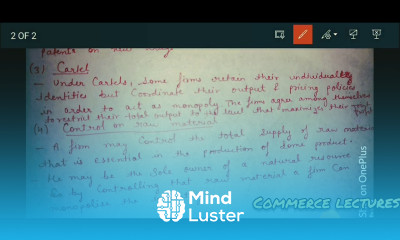 2 OF 2
Patents on new
(3) Cartel
- Under Cartels, some firms retain their individual
identities but coordinate their output & pricing policies
in order to act as monopoly. The firm agree among themselves
to restrict their total output to a level that maximizes their
profit
(4) Control on raw material
- A firm may control the total supply of raw material
that is essential in the production of some product.
He may be the sole owner of a natural resource
So by controlling that raw material a firm can
Mind
Luster
COMMERCE LECTURES
on OnePlus